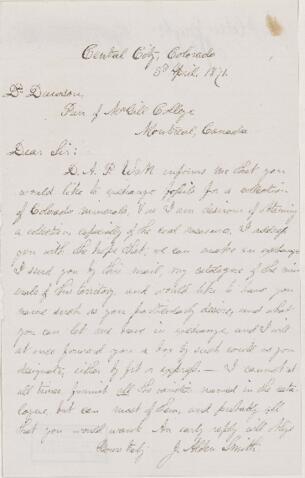 Central City, Colorado
5th April, 1871.
Dr Dawson,
Prin. of McGill College
Montreal, Canada
Dear Sir:
D. A. P. Watt informs me that you
would like to exchange fossils for a collection
of Colorado minerals, & as I am desirous of obtaining
a collection especially of the coal measures, I address
you with the hope that we can make an exchange
I send you by this mail, my catalogue of the min
erals of this territory, and would like to have you
name such as you particularly desire, and what
you can let me have in exchange, and I will
at once forward you a box by such route as you
designate, either by frt or express. — I cannot at
all times furnish all the varieties named in the cata-
logue, but can most of them, and probably all
that you would want. An early reply will oblige
Yours truly J. Alden Smith